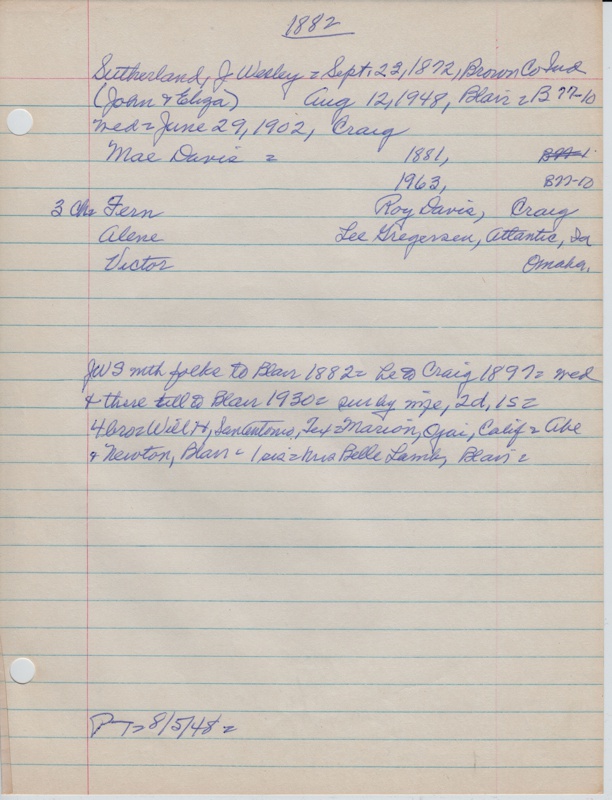 1882
Sutherland, J Wesley = Sept. 23, 1872, Brown Co Ind
(John & Eliza) Aug 12, 1948, Blair = B 77-10
Wed = June 29, 1902, Craig
Mae Davis = 1881, B77-1
1963, B77-10
3 Ch = Fern Roy Davis, Craig
Alene Lee Gregersen, Atlantic, Ia
Victor Omaha.
JWS with folks to Blair 1882 = he to Craig 1897 = wed
& there till to Blair 1930 = sur by wife, 2d, 1s =
4 bro = Will H, San Antonio, Tex = Marion, Ojai, Calif = Abe
& Newton, Blair = 1 sis = Mrs Belle Lamb, Blair =
PT = 8/5/48 =